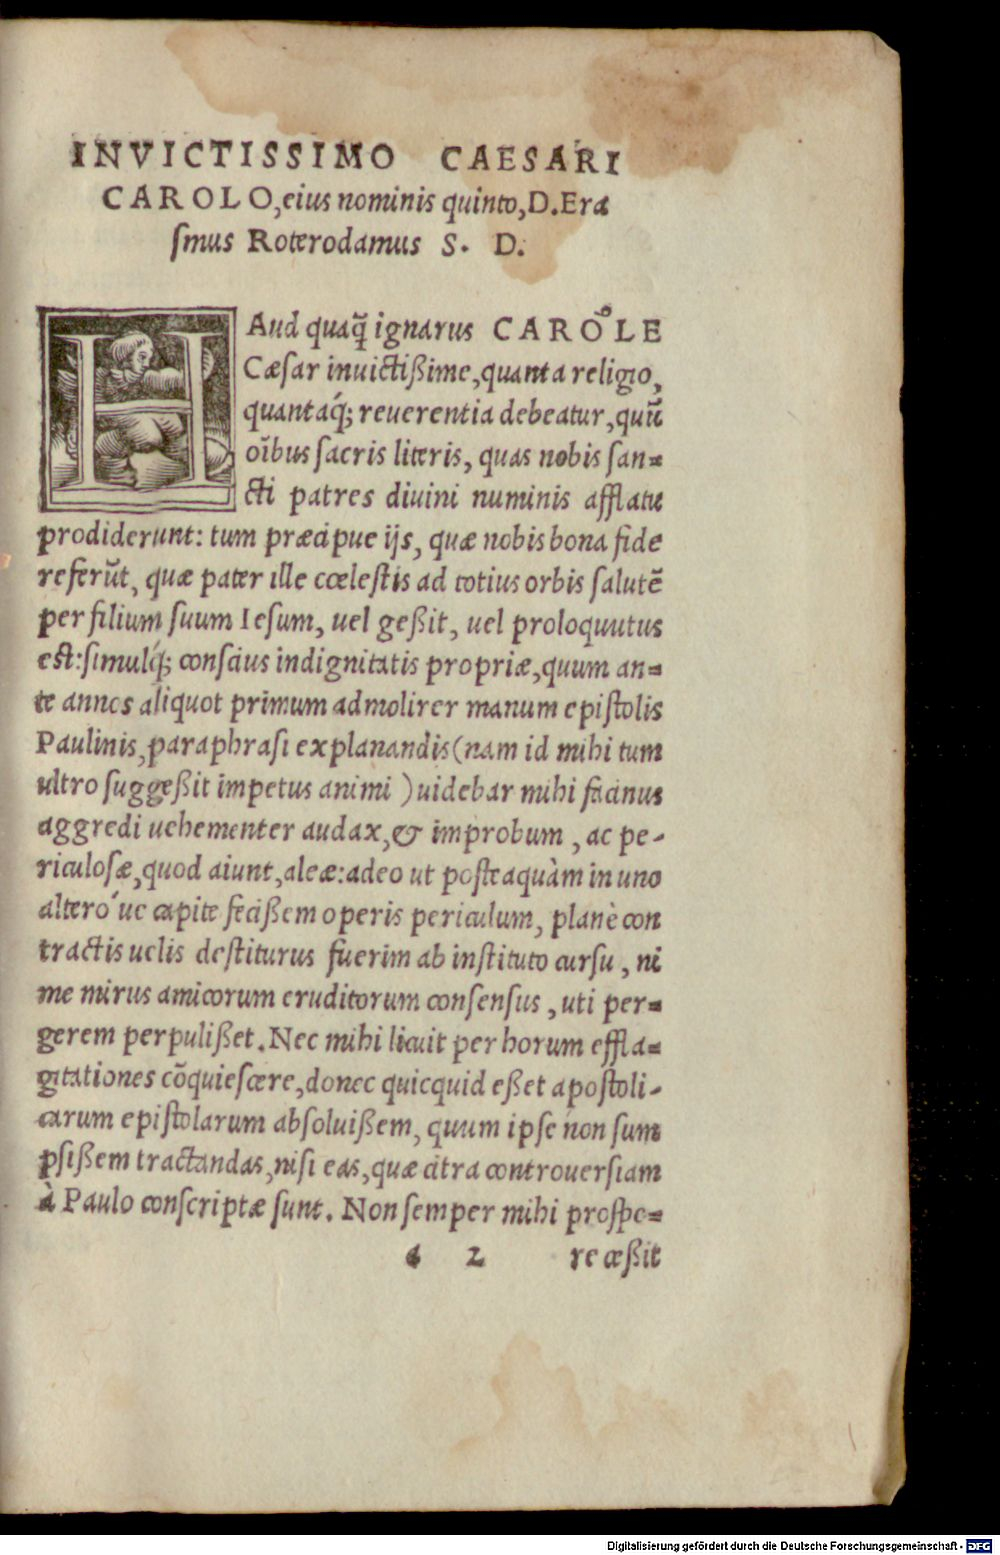 INVICTISSIMO CAESARI
CAROLO, eius nominis quinto, D. Era
ſmus Roterodamus S. D.
HAud quaq̃ ignarus CAROLE
Cæſar inuictißime, quanta religio,
quantaq́; reuerentia debeatur, quũ
oĩbus ſacris literis, quas nobis ſan=
cti patres diuini numinis afflatu
prodiderunt: tum præcipue ijs, quæ nobis bona fide
referũt, quæ pater ille cœleſtis ad totius orbis ſalutẽ
per filium ſuum Ieſum, uel geßit, uel proloquutus
eſt: simulq́; conſcius indignitatis propriæ, quum an=
te annos aliquot primum admolirer manum epiſtolis
Paulinis, paraphraſi explanandis (nam id mihi tum
ultro ſuggeßit impetus animi) uidebar mihi facinus
aggredi uehementer audax, & improbum, ac pe-
riculoſæ, quod aiunt, aleæ: adeo ut poſteaquàm in uno
altero ́ue capite fecißem operis periculum, planè con
tractis uelis deſtiturus fuerim ab inſtituto curſu, ni
me mirus amicorum eruditorum conſensus, uti per=
gerem perpulißet. Nec mihi licuit per horum effla=
gitationes cõquieſcere, donec quicquid eßet apoſtoli-
carum epiſtolarum abſoluißem, quum ipſe non ſum
pſißem tractandas, niſi eas, quæ citra controuerſiam
à Paulo conſcriptæ ſunt. Non ſemper mihi proſpe=
a 2 re ceßit
Digitalisierung gefördert durch die Deutsche Forschungsgemeinschaft - DFG